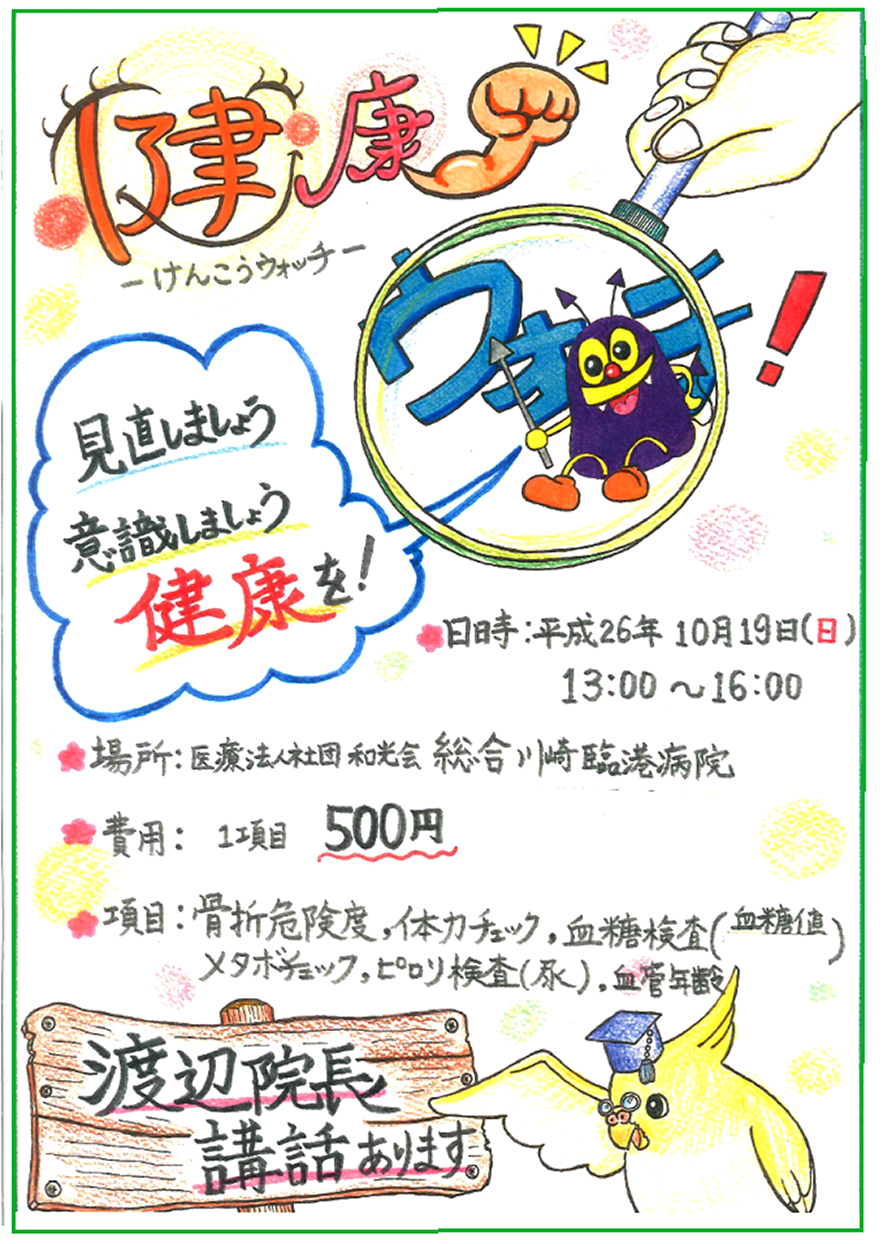 健康
ーけんこうウォッチー
ウォッチ！
見直しましょう
意識しましょう
健康を！
日時：平成26年 10月19日(日)
13:00 〜16:00
場所：医療法人社団 和光会 総合川崎臨港病院
費用： 1項目 500円
項目：骨折危険度，体力チェック，血糖検査(血糖値)
メタボチェック，ピロリ検査(尿)，血管年齢
渡辺院長
講話あります